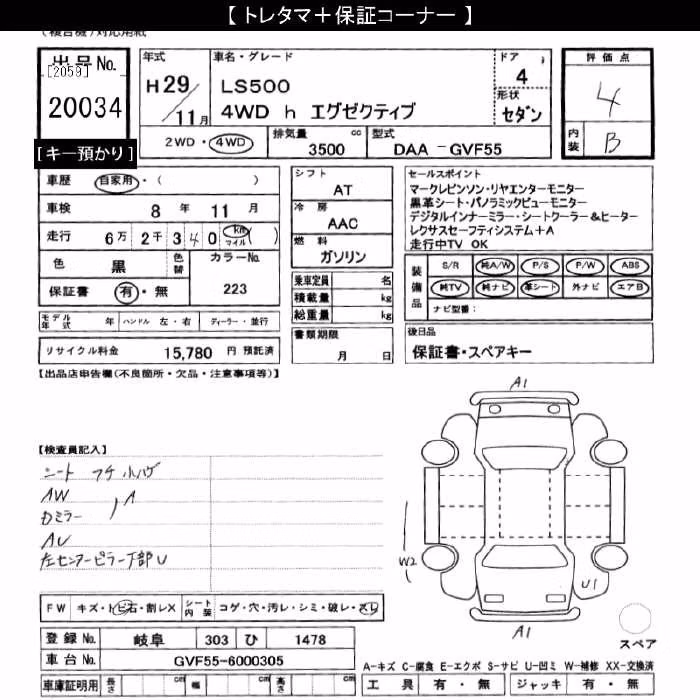 【 トレタマ＋保証コーナー 】
(複合機)対応用紙
出品No.
[2059]
20034
[キー預かり]
年式
H29/11月
車名・グレード
LS500
4WD h エグゼクティブ
ドア
4
形状
セダン
評価点
4
内装
B
2WD・4WD
排気量 3500 cc
型式 DAA －GVF55
車歴 自家用・( )
車検 8 年 11 月
走行 6万 2千 3 4 0 km マイル ( )
色 黒 色替 カラーNo.
保証書 有・無 223
シフト
AT
冷房
AAC
燃料
ガソリン
乗車定員 名
積載量 kg
総重量 kg
書類期限
月 日
セールスポイント
マークレビンソン・リヤエンターモニター
黒革シート・パノラミックビューモニター
デジタルインナーミラー・シートクーラー＆ヒーター
レクサスセーフティシステム＋A
走行中TV OK
装備品
S/R 純A/W P/S P/W ABS
純TV 純ナビ 革シート 外ナビ エアB
ナビ型番：
モデル年式 年 ハンドル 左・右 ディーラー・並行
リサイクル料金 15,780 円 預託済
後日品
保証書・スペアキー
【出品店申告欄(不良箇所・欠品・注意事項等)】
【検査員記入】
シート フチ 小ハゲ
AW
Dミラー ) A
AU
左センターピラー下部U
A1
W2
U1
A1
スペア
FW キズ・トビ石・割レX シート内装 コゲ・穴・汚レ・シミ・破レ・スレ
登録No. 岐阜 303 ひ 1478
車台No. GVF55-6000305
車庫証明用 長さ cm 幅 cm 高さ cm
A-キズ C-腐食 E-エクボ S-サビ U-凹ミ W-補修 XX-交換済
工具 有・無 ジャッキ 有・無